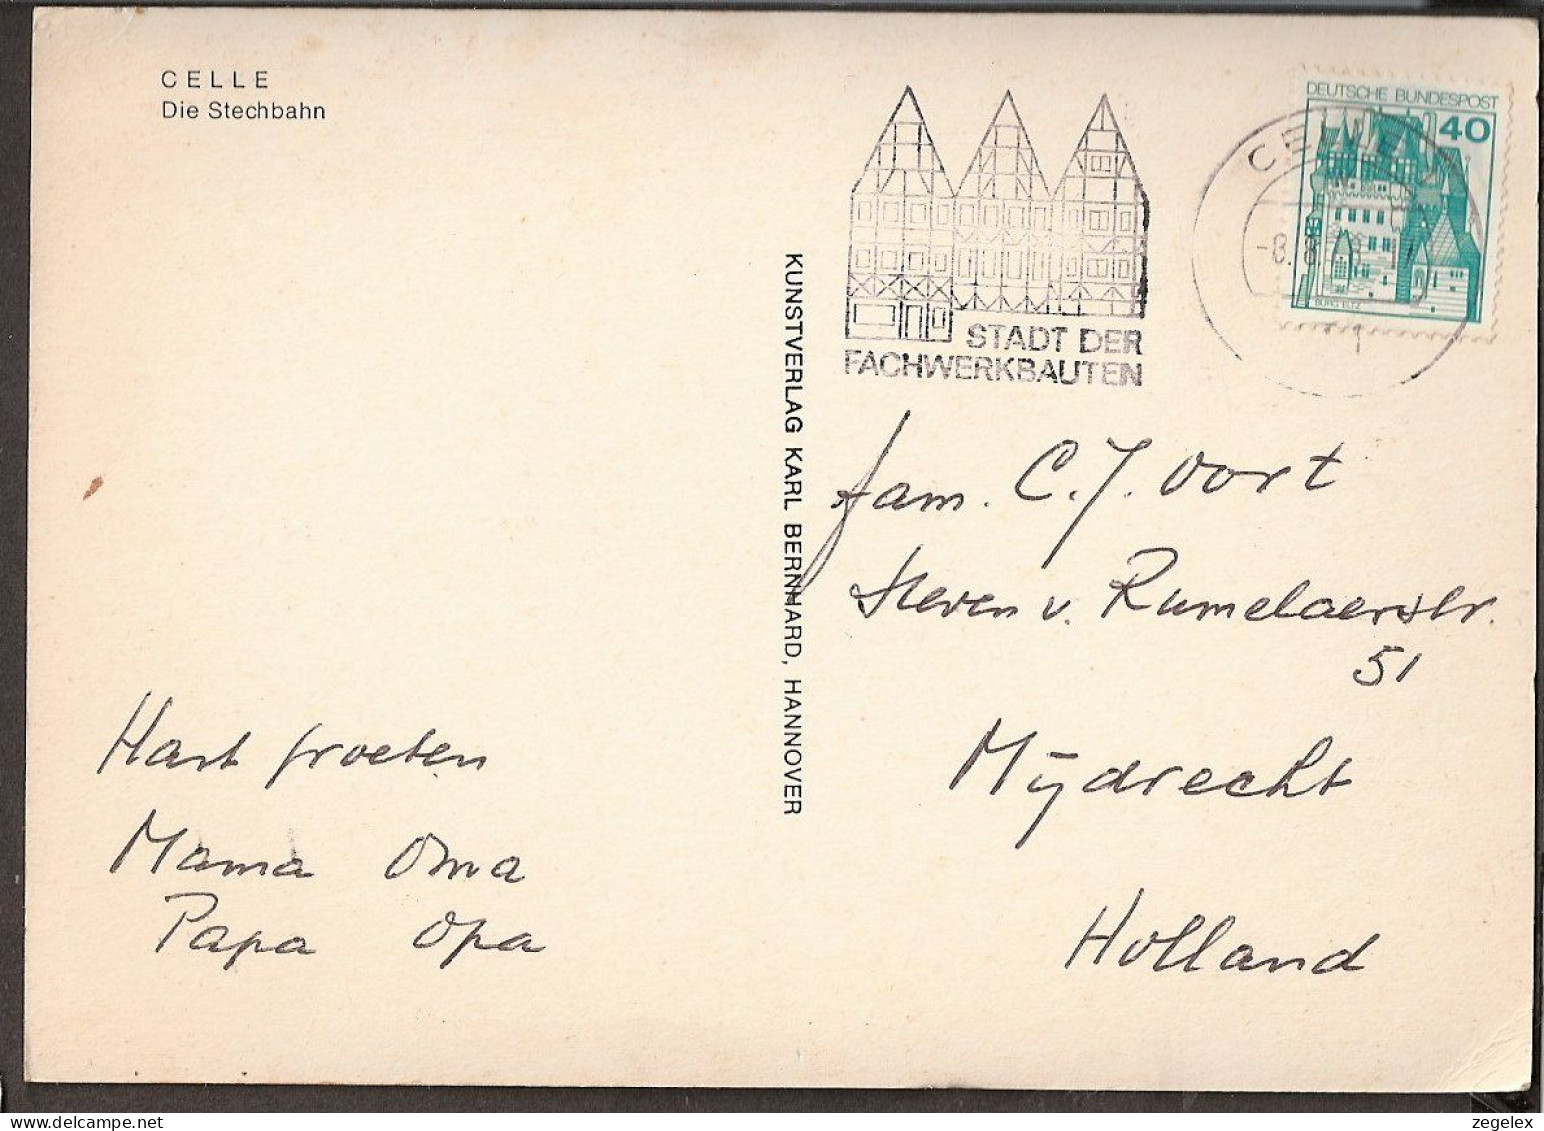 CELLE
Die Stechbahn
DEUTSCHE BUNDESPOST
40
BURG ELTZ
CELLE
STADT DER
FACHWERKBAUTEN
KUNSTVERLAG KARL BERNHARD, HANNOVER
fam. C.J. Oort
Steven v. Rumelaerstr.
51
Mijdrecht
Holland
Hart groeten
Mama Oma
Papa Opa
zegelex